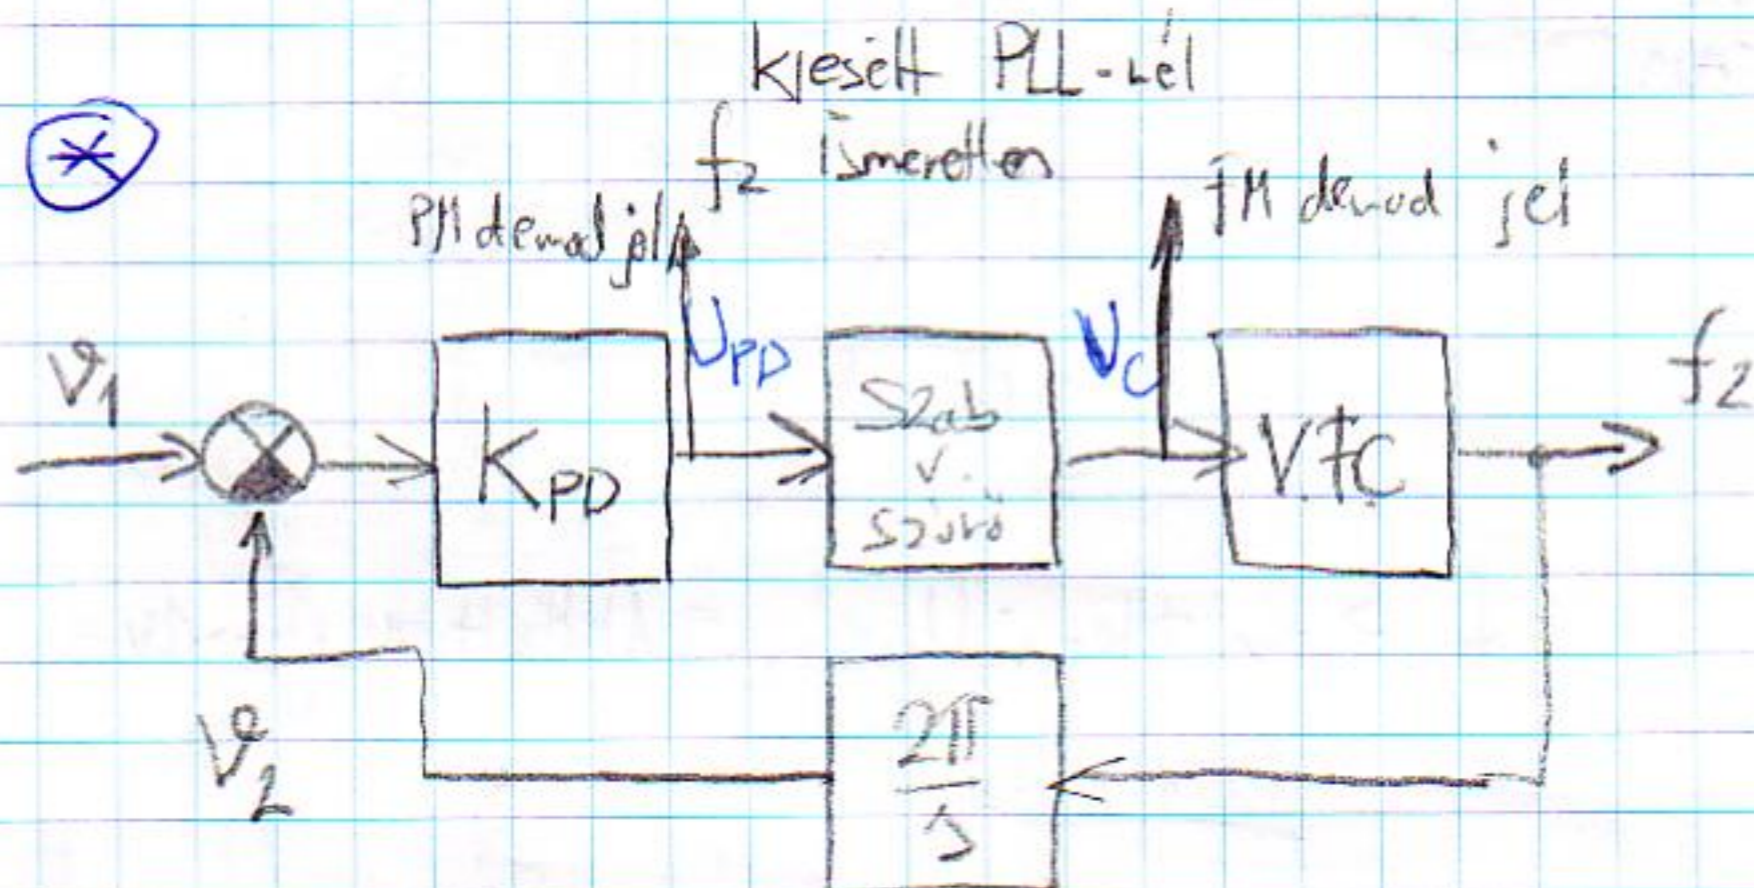 kiesett PLL-nél
f₂ ismeretlen
PM demod jel
FM demod jel
ϑ₁
K_PD
U_PD
Szab
v.
szűrő
V_C
VFC
f₂
ϑ₂
2π
s